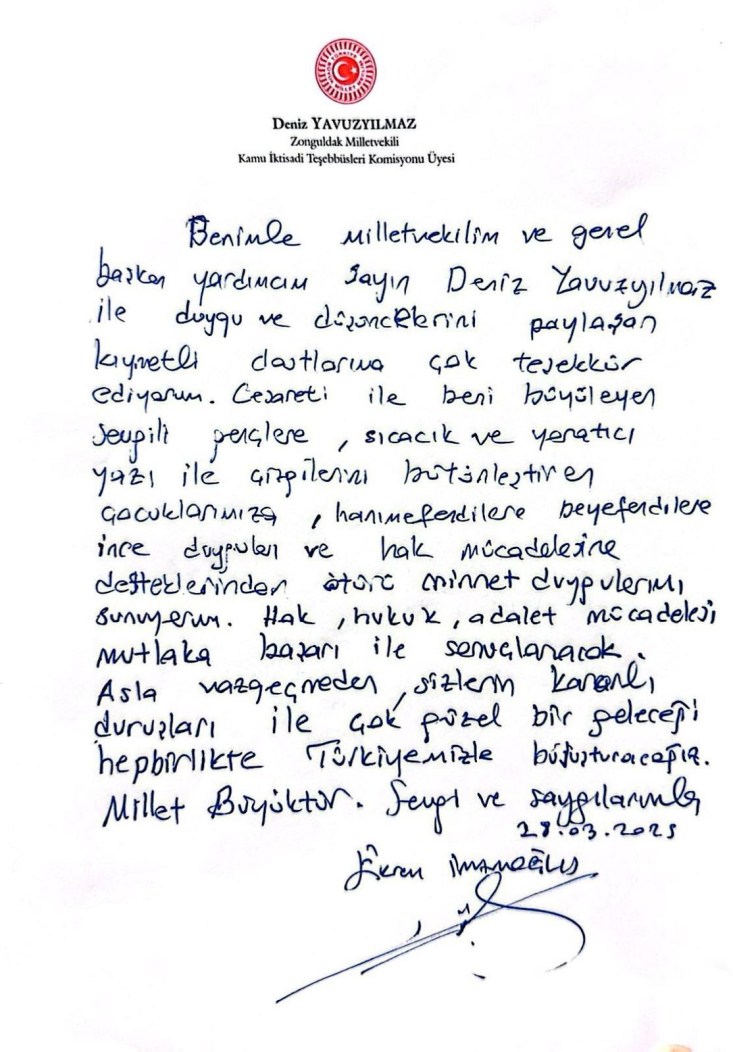 Deniz YAVUZYILMAZ
Zonguldak Milletvekili
Kamu İktisadi Teşebbüsleri Komisyonu Üyesi
Benimle milletvekilim ve genel
başkan yardımcım Sayın Deniz Yavuzyılmaz
ile duygu ve düşüncelerini paylaşan
kıymetli dostlarıma çok teşekkür
ediyorum. Cesareti ile beni büyüleyen
sevgili gençlere, sıcacık ve yaratıcı
yazı ile çizgilerini bütünleştiren
çocuklarımıza, hanımefendilere beyefendilere
ince duyguları ve hak mücadelesine
desteklerinden ötürü minnet duygularımı
sunuyorum. Hak, hukuk, adalet mücadelesi
mutlaka başarı ile sonuçlanacak.
Asla vazgeçmeden, sizlerin kararlı
duruşları ile çok güzel bir geleceği
hepbirlikte Türkiyemizle buluşturacağız.
Millet Büyüktür. Sevgi ve saygılarımla
28.03.2025
Ekrem İmamoğlu